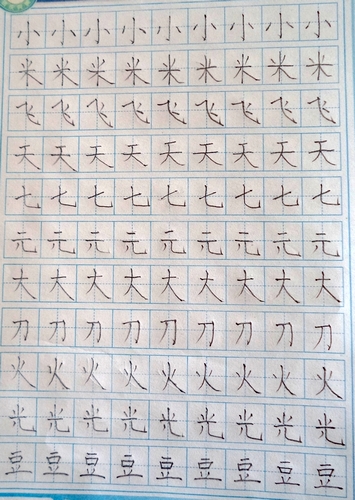 小小小小小小小小小
米米米米米米米米米
飞飞飞飞飞飞飞飞飞
天天天天天天天天天
七七七七七七七七七
元元元元元元元元元
大大大大大大大大大
刀刀刀刀刀刀刀刀刀
火火火火火火火火火
光光光光光光光光光
豆豆豆豆豆豆豆豆豆